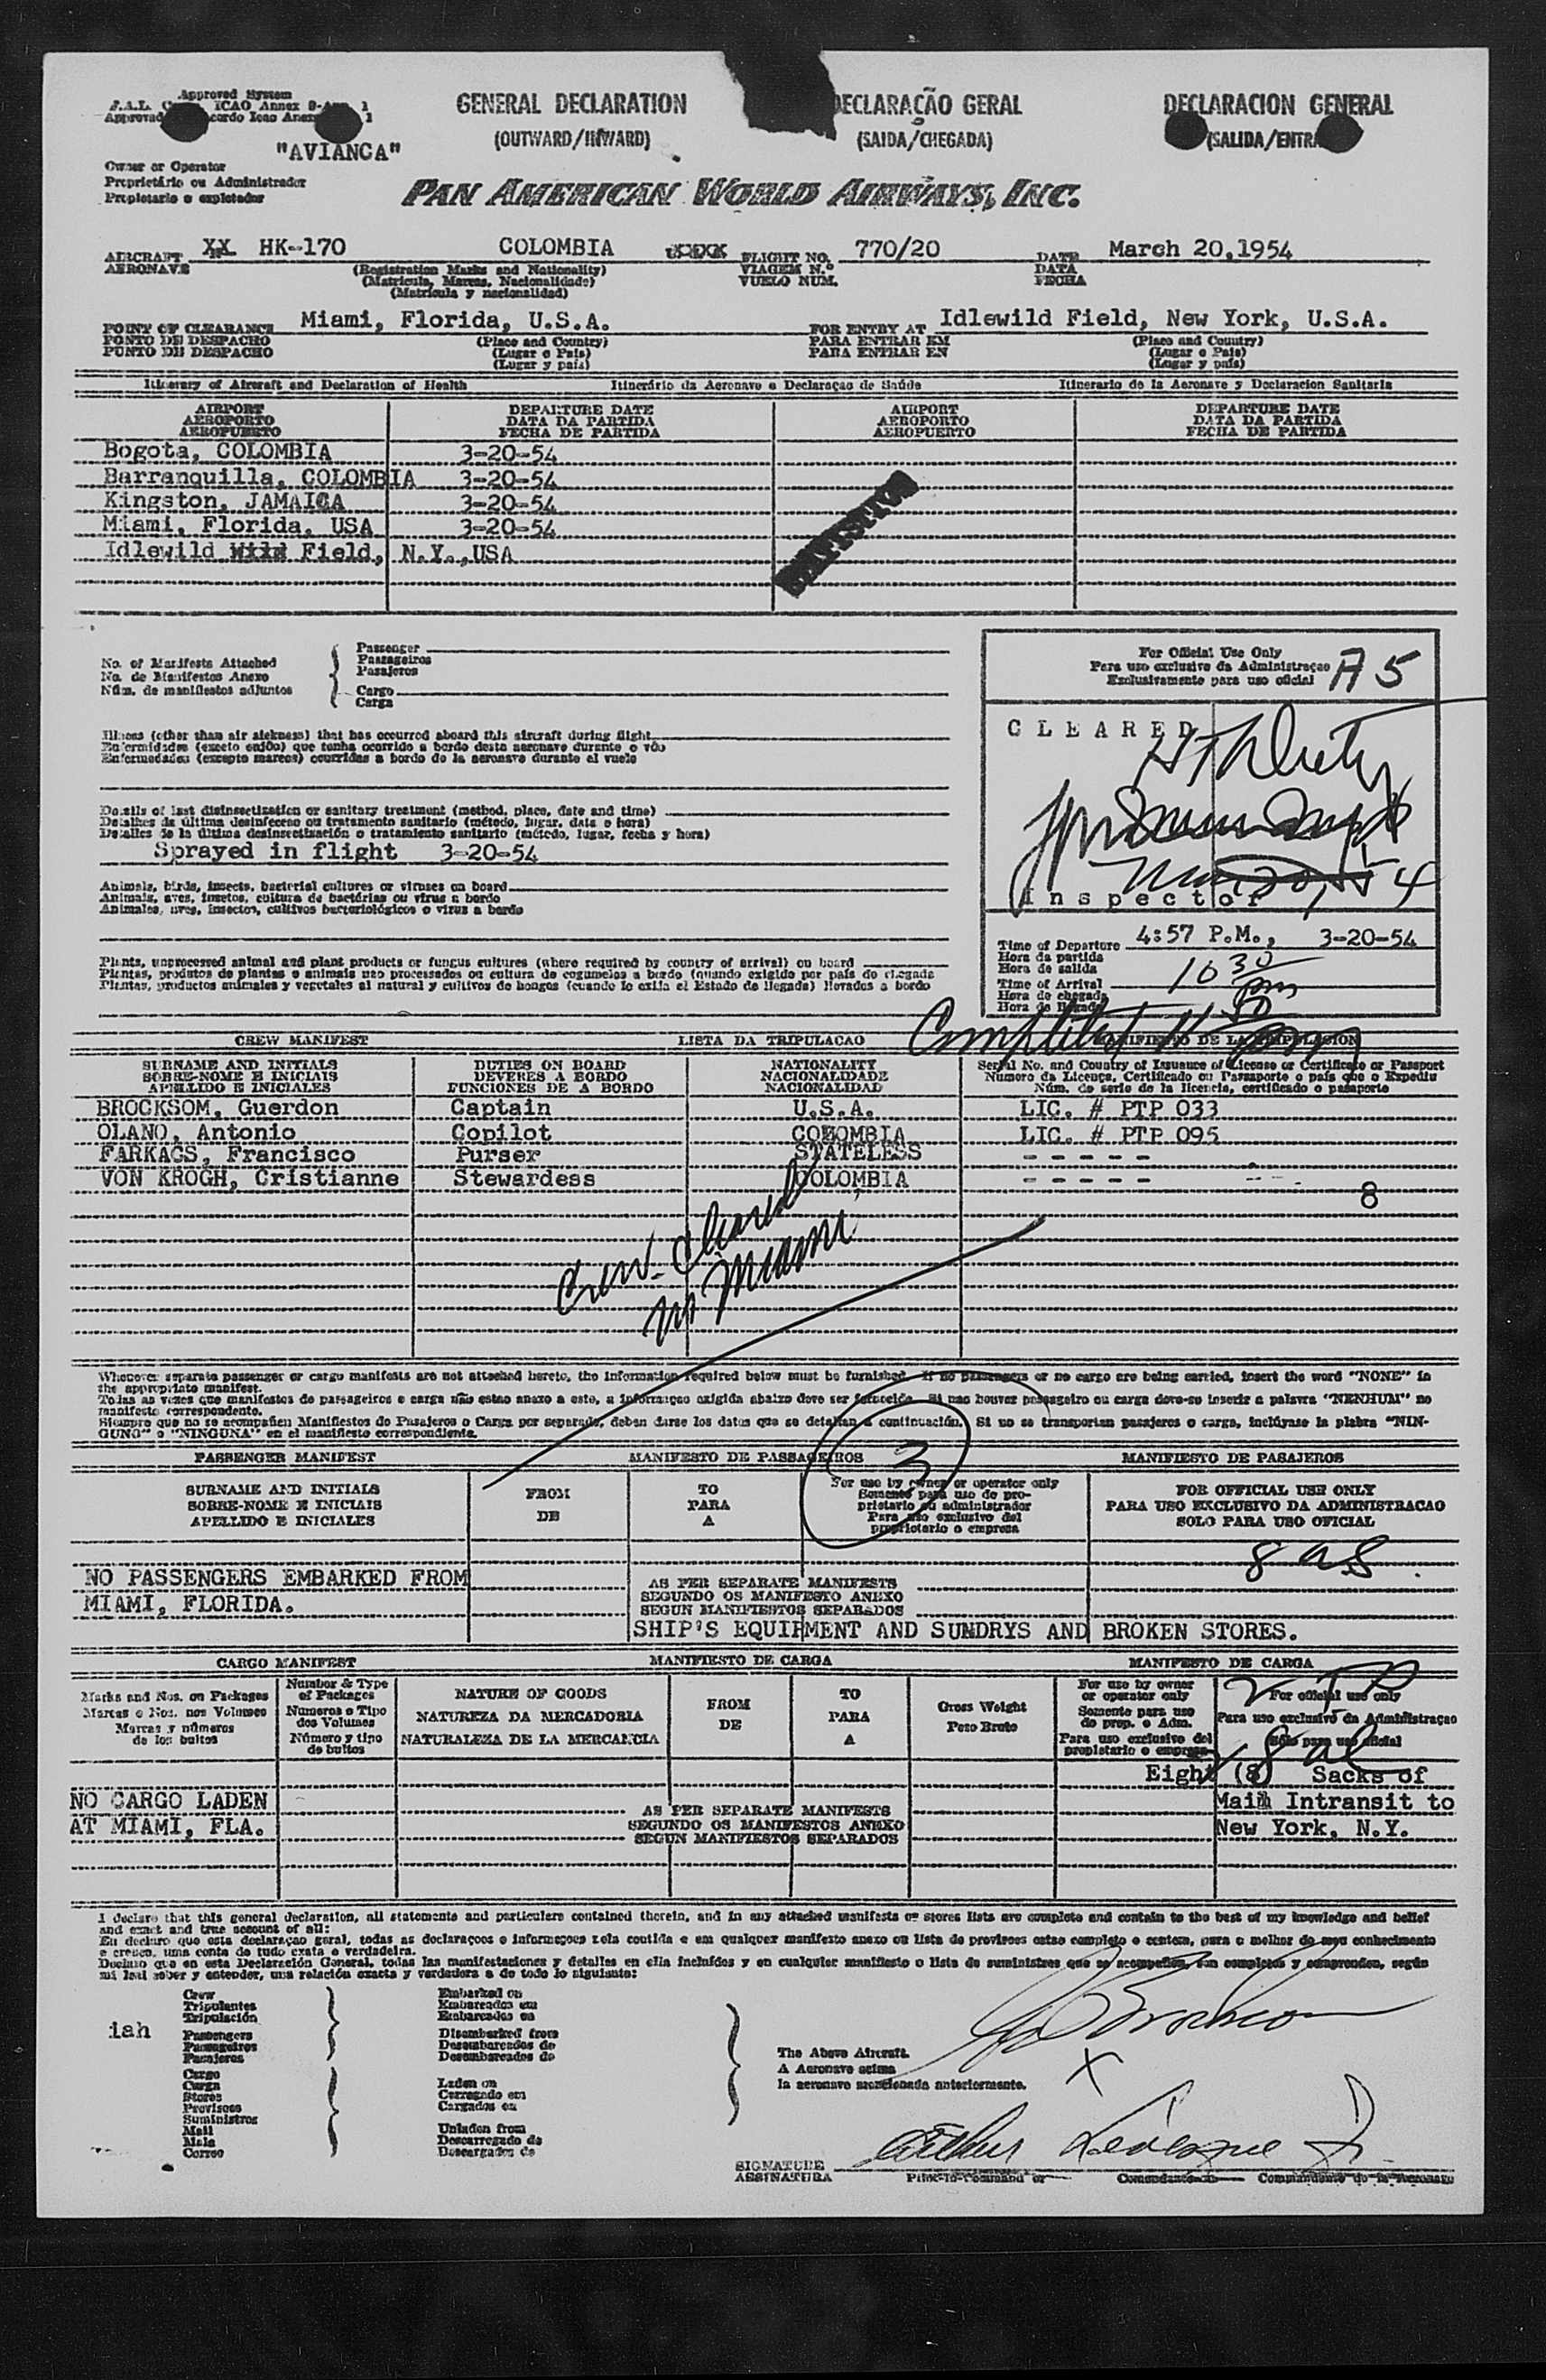 Approved System
F.A.L. ICAO Annex 9-
"AVIANCA"
GENERAL DECLARATION
(OUTWARD/INWARD)
DECLARAÇÃO GERAL
(SAIDA/CHEGADA)
DECLARACION GENERAL
(SALIDA/ENTRA
Owner or Operator
Proprietário ou Administrador
Propietario o explotador
PAN AMERICAN WORLD AIRWAYS, INC.
AIRCRAFT XX HK-170 COLOMBIA FLIGHT NO. 770/20 DATE March 20,1954
AERONAVE (Registration Marks and Nationality) VIAGEM N.º DATA
(Matrícula, Marcas, Nacionalidade) VUELO NUM. FECHA
(Matrícula y nacionalidad)
POINT OF CLEARANCE Miami, Florida, U.S.A. FOR ENTRY AT Idlewild Field, New York, U.S.A.
PONTO DE DESPACHO (Place and Country) PARA ENTRAR EM (Place and Country)
PUNTO DE DESPACHO (Lugar e Pais) PARA ENTRAR EN (Lugar e Pais)
(Lugar y país) (Lugar y país)
Itinerary of Aircraft and Declaration of Health Itinerário da Aeronave e Declaraçao de Saúde Itinerario de la Aeronave y Declaracion Sanitaria
AIRPORT DEPARTURE DATE AIRPORT DEPARTURE DATE
AEROPORTO DATA DA PARTIDA AEROPORTO DATA DA PARTIDA
AEROPUERTO FECHA DE PARTIDA AEROPUERTO FECHA DE PARTIDA
Bogota, COLOMBIA 3-20-54
Barranquilla, COLOMBIA 3-20-54
Kingston, JAMAICA 3-20-54
Miami, Florida, USA 3-20-54
Idlewild Field, N.Y.,USA
No. of Manifests Attached
No. de Manifestos Anexo
Núm. de manifiestos adjuntos
Passenger
Passageiros
Pasajeros
Cargo
Carga
For Official Use Only
Para uso exclusivo da Administraçao
Exclusivamente para uso oficial
A 5
CLEARED
Inspector
Illness (other than air sickness) that has occurred aboard this aircraft during flight
Enfermidades (exceto enjôo) que tenha ocorrido a bordo desta aeronave durante o vôo
Enfermedades (excepto mareos) ocurridas a bordo de la aeronave durante el vuelo
Details of last disinsectization or sanitary treatment (method, place, date and time)
Detalhes da última desinfecçao ou tratamento sanitario (método, lugar, data e hora)
Detalles de la última desinsectización o tratamiento sanitario (método, lugar, fecha y hora)
Sprayed in flight 3-20-54
Animals, birds, insects, bacterial cultures or viruses on board
Animais, aves, insetos, cultura de bactérias ou virus a bordo
Animales, aves, insectos, cultivos bacteriológicos o virus a bordo
Plants, unprocessed animal and plant products or fungus cultures (where required by country of arrival) on board
Plantas, produtos de plantas e animais nao processados ou cultura de cogumelos a bordo (quando exigido por país de chegada
Plantas, productos animales y vegetales al natural y cultivos de hongos (cuando lo exija el Estado de llegada) llevados a bordo
Time of Departure 4:57 P.M., 3-20-54
Hora da partida
Hora de salida
Time of Arrival 10 30 pm
Hora de chegada
Hora de llegada
Completed 11 50 pm
CREW MANIFEST LISTA DA TRIPULACAO MANIFIESTO DE LA TRIPULACION
SURNAME AND INITIALS DUTIES ON BOARD NATIONALITY Serial No. and Country of Issuance of License or Certificate or Passport
SOBRE-NOME E INICIAIS DEVERES A BORDO NACIONALIDADE Numero da Licença, Certificado ou Passaporte o país que o Expediu
APELLIDO E INICIALES FUNCIONES DE A BORDO NACIONALIDAD Núm. de serie de la licencia, certificado o pasaporte
BROCKSOM, Guerdon Captain U.S.A. LIC. # PTP 033
OLANO, Antonio Copilot COLOMBIA LIC. # PTP 095
FARKACS, Francisco Purser STATELESS - - - - -
VON KROGH, Cristianne Stewardess COLOMBIA - - - - -
8
Crew cleared
in Miami
Whenever separate passenger or cargo manifests are not attached hereto, the information required below must be furnished. If no passengers or no cargo are being carried, insert the word "NONE" in
the appropriate manifest.
Todas as vezes que manifestos de passageiros e carga não estao anexo a este, a informaçao exigida abaixo deve ser fornecida. Si nao houver passageiro ou carga deve-se inserir a palavra "NENHUM" no
manifesto correspondente.
Siempre que no se acompañen Manifiestos de Pasajeros o Carga por separado, deben darse los datos que se detallan a continuación. Si no se transportan pasajeros o carga, inclúyase la plabra "NIN-
GUNO" o "NINGUNA" en el manifiesto correspondiente.
3
PASSENGER MANIFEST MANIFESTO DE PASSAGEIROS MANIFIESTO DE PASAJEROS
SURNAME AND INITIALS FROM TO For use by owner or operator only FOR OFFICIAL USE ONLY
SOBRE-NOME E INICIAIS DE PARA Somente para uso de pro- PARA USO EXCLUSIVO DA ADMINISTRACAO
APELLIDO E INICIALES A prietario ou administrador SOLO PARA USO OFICIAL
Para uso exclusivo del
propietario o empresa
NO PASSENGERS EMBARKED FROM AS PER SEPARATE MANIFESTS
MIAMI, FLORIDA. SEGUNDO OS MANIFESTO ANEXO
SEGUN MANIFIESTOS SEPARADOS
SHIP'S EQUIPMENT AND SUNDRYS AND BROKEN STORES.
CARGO MANIFEST MANIFIESTO DE CARGA MANIFESTO DE CARGA
Marks and Nos. on Packages
Marcas e Nos. nos Volumes
Marcas y números
de los bultos
Number & Type
of Packages
Numeros e Tipo
dos Volumes
Número y tipo
de bultos
NATURE OF GOODS
NATUREZA DA MERCADORIA
NATURALEZA DE LA MERCANCIA
FROM
DE
TO
PARA
A
Gross Weight
Peso Bruto
For use by owner
or operator only
Somente para uso
do prop. e Adm.
Para uso exclusivo del
propietario o empresa
For official use only
Para uso exclusivo da Administraçao
Sólo para uso oficial
Eight (8) Sacks of
NO CARGO LADEN AS PER SEPARATE MANIFESTS Mail Intransit to
AT MIAMI, FLA. SEGUNDO OS MANIFESTOS ANEXO New York, N.Y.
SEGUN MANIFIESTOS SEPARADOS
I declare that this general declaration, all statements and particulars contained therein, and in any attached manifests or stores lists are complete and contain to the best of my knowledge and belief
and exact and true account of all:
Eu declaro que esta declaraçao geral, todas as declaraçoes e informaçoes nela contida e em qualquer manifesto anexo ou lista de provisoes estao completo e contem, para o melhor do meu conhecimento
e crenca, uma conta de tudo exata e verdadeira.
Declaro que en esta Declaración General, todas las manifestaciones y detalles en ella incluídos y en cualquier manifiesto o lista de suministros que se acompañen, son completos y comprenden, según
mi leal saber y entender, una relación exacta y verdadera a de todo lo siguiente:
iah
Crew
Tripulantes
Tripulación
Passengers
Passageiros
Pasajeros
Cargo
Carga
Stores
Provisoes
Suministros
Mail
Mala
Correo
Embarked on
Embarcados em
Embarcados en
Disembarked from
Desembarcados de
Desembarcados de
Laden on
Carregado em
Cargados en
Unladen from
Descarregado de
Descargados de
The Above Aircraft.
A Aeronave acima
la aeronave mencionada anteriormente.
X
SIGNATURE
ASSINATURA
Pilot-in-Command or Comandante ou Commandante de la Aeronave